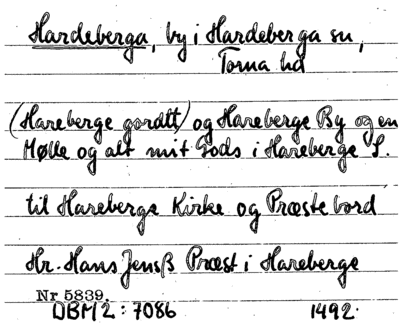 Hardeberga, by i Hardeberga sn,
Torna hd
(Hareberge gordtt) og Hareberge By og en
Mølle og alt mit Gods i Hareberge S.
til Hareberge Kirke og Præstebord
Hr. Hans Jensß Præst i Hareberge
Nr 5839.
DBM 2: 7086 1492.